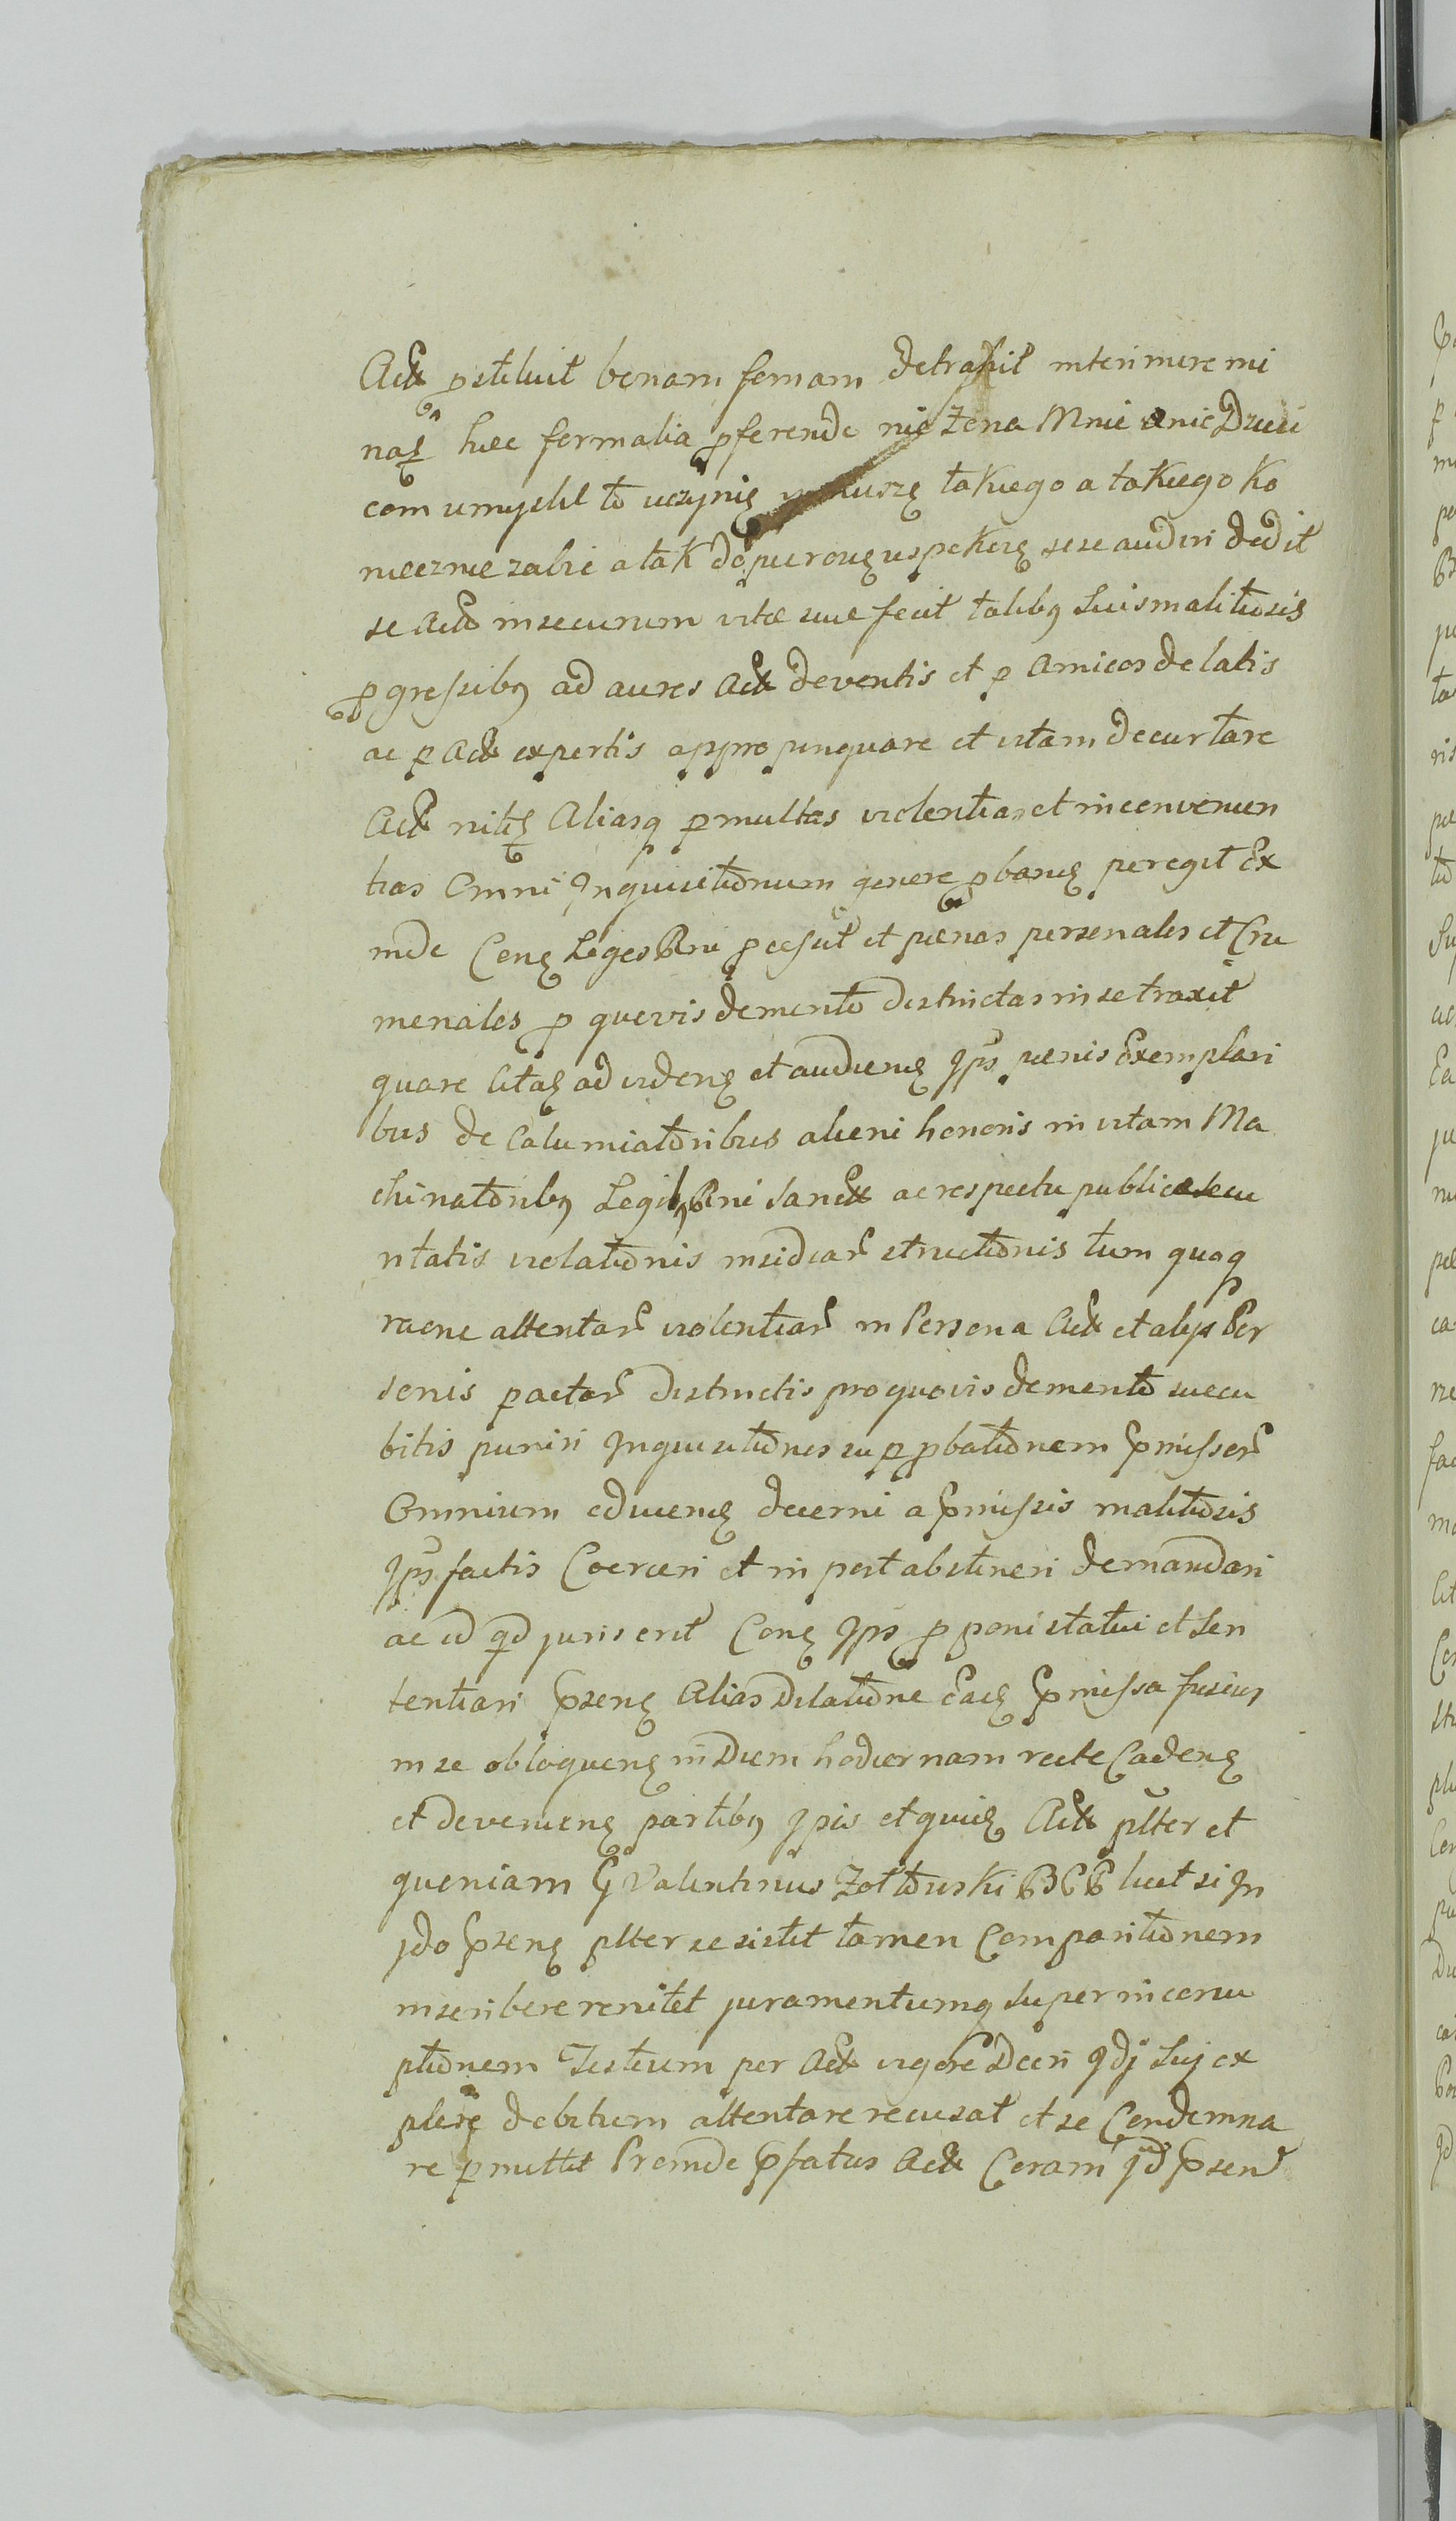 Actt pstituit bonam famam detrahit interimere mi
nat haec formalia pferendo nie Zona Mnie anie Dzieci
com umyslil to uczynię muszę takiego a takiego ko
niecznie zabic a tak dopieroż uspokoię sese audiri dedit
se Actt insecurum vitae suae fecit talibq Suis malitiosis
pgressibq ad aures Actt deventis et p Amicos delatis
ac p Actt expertis appropinquare et vitam decurtare
Actt nitt Aliasq pmultas violentias et inconvenien
tias Omni Inquisitionum genere pband peregit Ex
inde Cont Leges Rni pcessit et paenas personales et Cri
minales p quovis demerito destrictas in se traxit
quare Citat ad vidend et audiend Ips paenis Exemplari
bus de Calumiatoribus alieni honoris in vitam Ma
chinatoribq Legibq Rni Sanctt ac respectu publicae secu
ritatis violationis insidiar structionis tum quoq
raone attentar violentiar in Persona Actt et alijs Per
sonis pactar districtis pro quovis demerito succu
bitis puniri Inquisitiones sup pbationem pmissor
Omnium educend decerni a pmissis malitiosis
Ips factis Coerceri et in post abstineri demandari
ac id qd juris erit Cont Ips pponi statui et Sen
tentiari psent Alias Dilatione Ead pmissa fusius
in se obloquent in Diem hodiernam recte Cadent
et devenient partibq Ipis et quid Actt plter et
quoniam G Valentinus Zoltowski RCR licet si In
jdo psent plter se sistit tamen Comparitionem
inscribere renitet juramentumq super incorru
ptionem Testium per Actt vigore Dccri jdj Suj ex
plere debitum attentare recusat et se Condemna
re pmittit Proinde pfatus Actt Coram jud psen